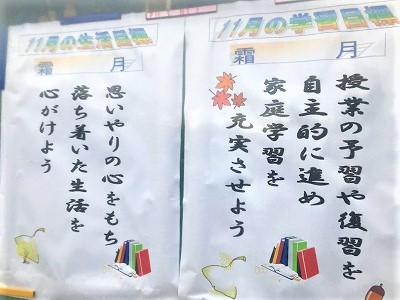 11月の学習目標
霜月
授業の予習や復習を
自主的に進め
家庭学習を
充実させよう
11月の生活目標
霜月
思いやりの心をもち
落ち着いた生活を
心がけよう